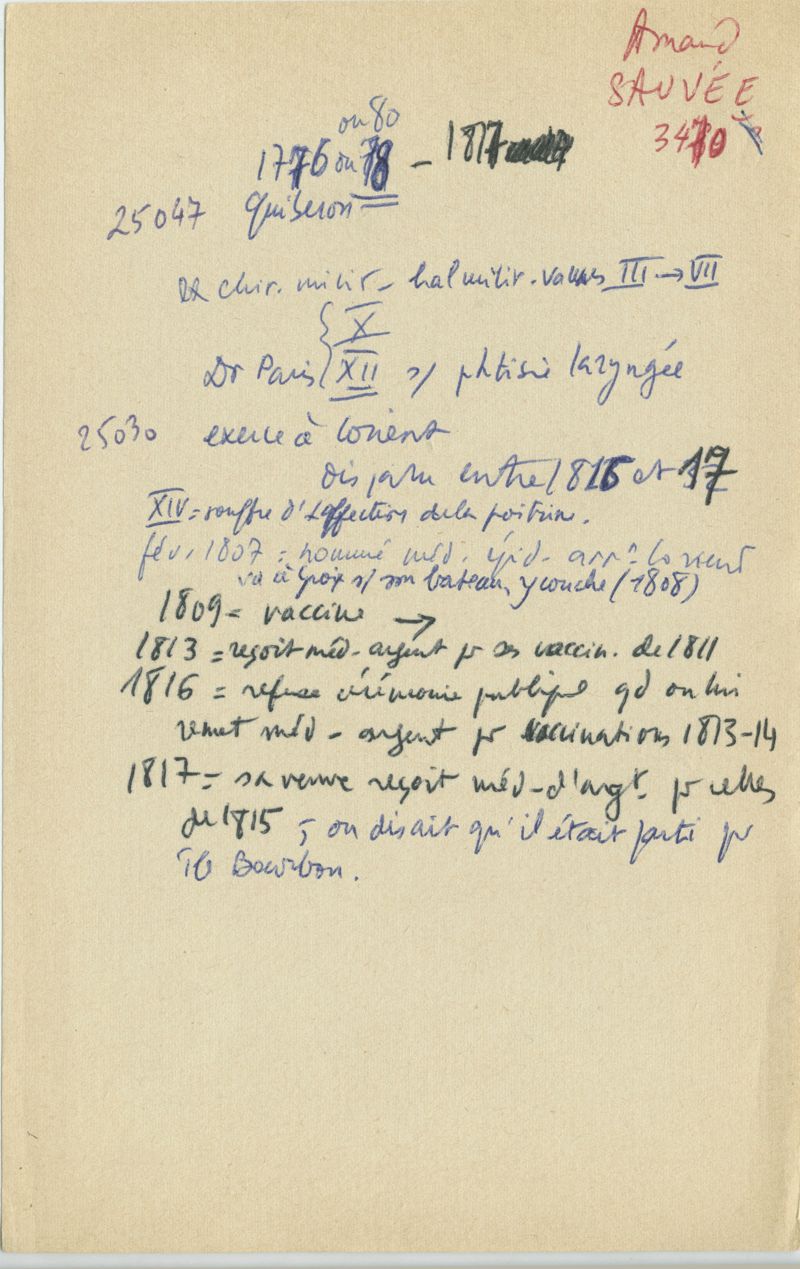 Armand
SAUVÉE
3470
ou 80
1776 ou 78 - 1817
25047 Quiberon
Ex chir. milit - hal milit. Vannes III → VII
X
Dr Paris XII s/ phtisie laryngée
25030 exerce à Lorient
disparu entre 1816 et 17
XIV = souffre d'affection de la poitrine.
fév. 1807 = nommé méd. épid. arr^t Lorient
va à Groix s/ son bateau, y couche (1808)
1809 = vaccine →
1813 = reçoit méd - argent pr ses vaccin. de 1811
1816 = refuse cérémonie publique qd on lui
remet méd - argent pr vaccinations 1813-14
1817 = sa veuve reçoit méd - d'argt. pr celles
de 1815 ; on disait qu'il était parti pr
Ile Bourbon.